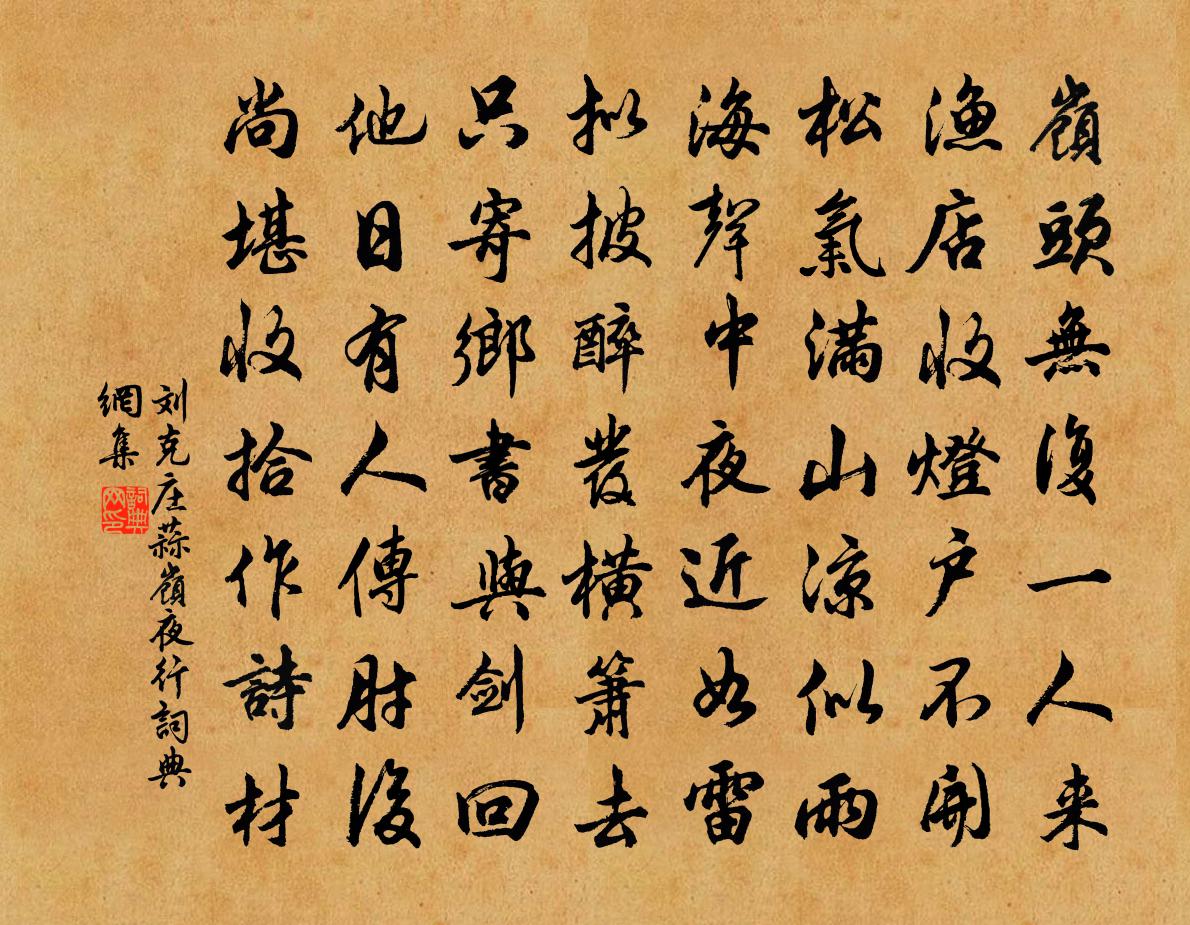 嶺頭無復一人来
漁店收燈户不開
松氣滿山涼似雨
海聲中夜近如雷
拟披醉發橫簫去
只寄鄉書與劍回
他日有人傳肘後
尚堪收拾作詩材
刘克庄蒜嶺夜行詞典
網集
詞典
网印